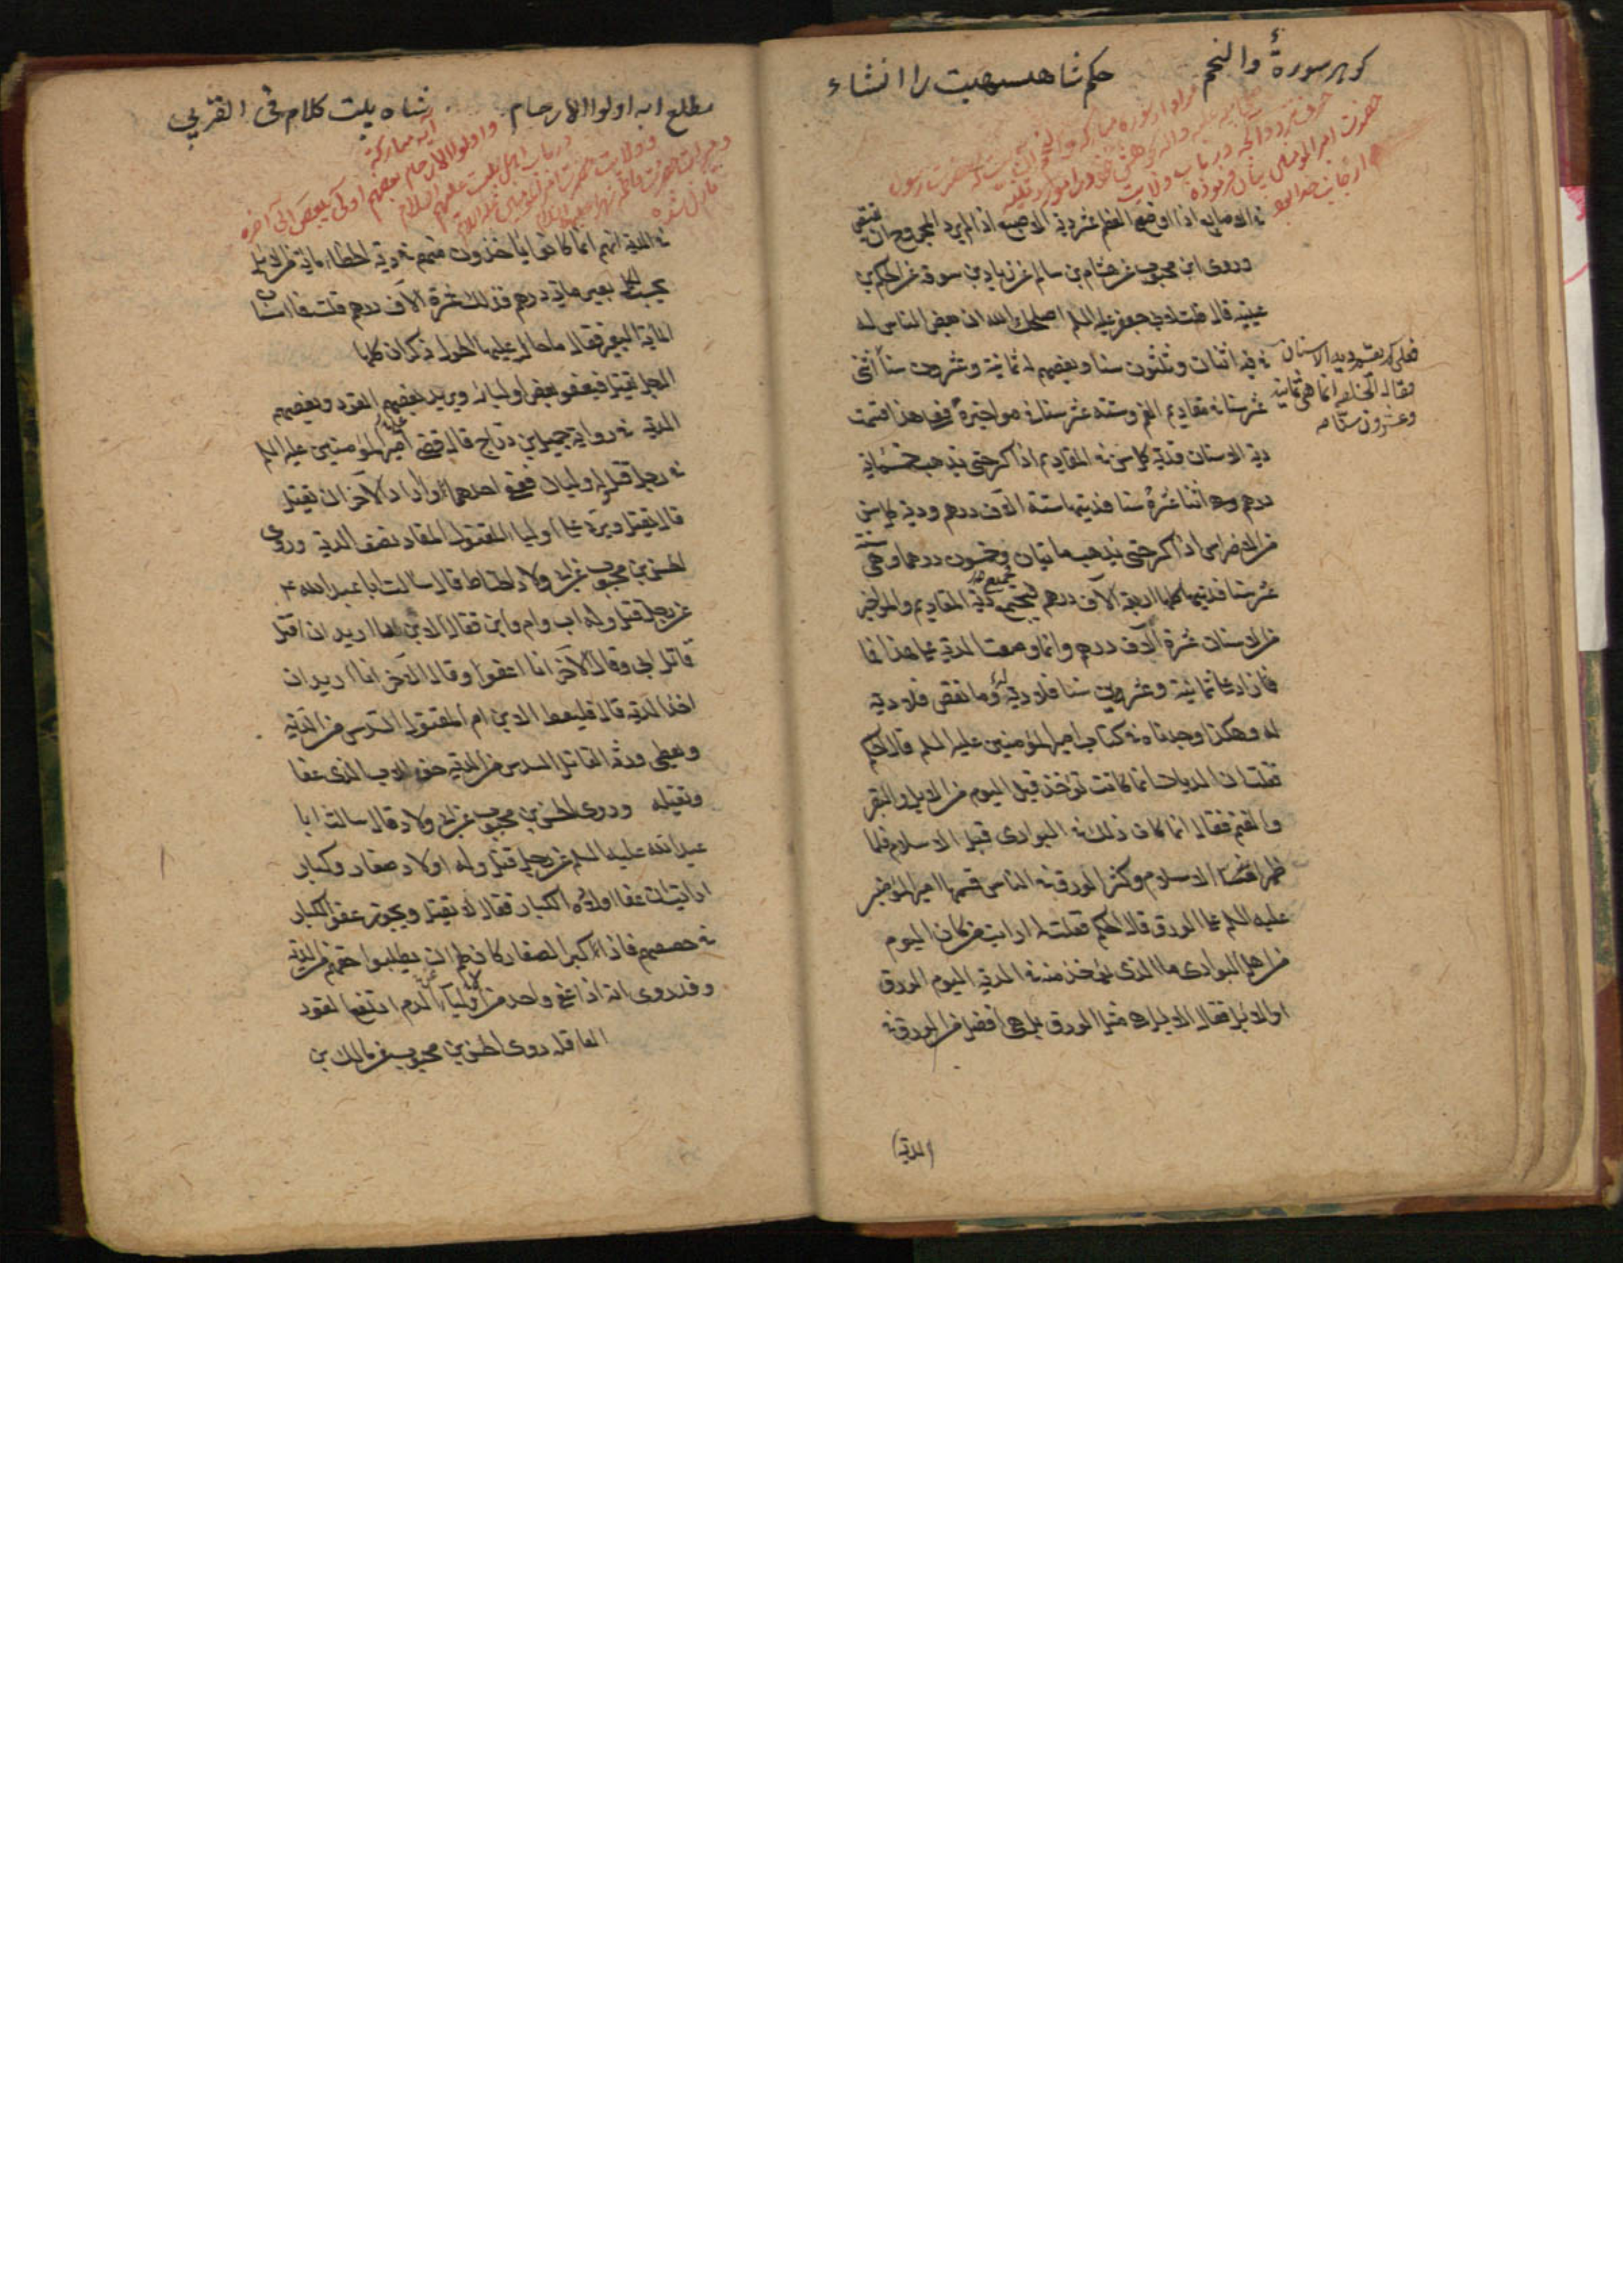 کوهر سورهٔ والنجم حکم شاهنشهیت را انشاء
مراد از سوره مبارکه والنجم
حضرت رسول
حضرت امیر المؤمنین بیان فرموده
في الاصابع اذا اوضح العظم عشر دية الاصبع اذا لم يرد المجروح ان يقتص
وروى ابن محبوب عن هشام بن سالم عن زياد بن سوقة عن الحكم بن
عيينه قال قلت لابي جعفر عليه السلم اصلحك الله ان بعض الناس له
في فيه اثنان وثلثون سنا وبعضهم له ثمانية وعشرون سنا
فعلى كم يقسم دية الاسنان
فقال الخلقه انما هي ثمانية
وعشرون سنا
عشر سنا في مقاديم الفم وستة عشر سنا في مواخيره فعلى هذا قسمت
دية الاسنان فدية كل سن من المقاديم اذا كسر حتى يذهب خمسمائة
درهم وهي اثنا عشر سنا فديتها ستة الاف درهم ودية كل سن
من الاضراس اذا كسر حتى يذهب مائتان وخمسون درهما وهي ستة
عشر سنا فديتها كلها اربعة الآف درهم فجميع دية المقاديم والمواخير
من الاسنان عشرة آلاف درهم وانما وضعت الدية على هذا فما
زاد على ثمانية وعشرين سنا فلا دية له وما نقص فلا دية
له وهكذا وجدناه في كتاب امير المؤمنين عليه السلم قال الحكم
فقلت ان الديات انما كانت تؤخذ قبل اليوم من الابل والبقر
والغنم فقال انما كان ذلك في البوادى قبل الاسلام فلما
ظهر الاسلام وكثر الورق في الناس قسمها امير المؤمنين
عليه السلم على الورق قال الحكم فقلت له ارايت من كان اليوم
من اهل البوادى ما الذى يؤخذ منه في الدية اليوم الورق
او الابل فقال الابل هي مثل الورق بل هي افضل من الورق في
(الدية)
مطلع ايه اولوا الارحام شاه بيت كلام في القربى
آیه مبارکه
واولوا الارحام بعضهم اولى ببعض الى آخره
در باب اهل بیت علیهم السلام
نازل شده
في الدية انهم انما كانوا ياخذون منهم في دية الخطاء مائة من الابل
يحسب لكل بعير مائة درهم فذلك عشرة آلاف درهم قلت فما اسنان
المائة البعير فقال ما حال عليها الحول ذكران كلها
الرجل يقتل فيعفو بعض اوليائه ويريد بعضهم القود وبعضهم
الدية في رواية جميل بن دراج قال قضى امير المؤمنين عليه السلم
في رجل قتل وله وليان فعفى احدهما واراد الآخر ان يقتل
قال يقتل ويرد على اولياء المقتول المقاد نصف الدية وروى
الحسن بن محبوب عن ابى ولاد الحناط قال سالت ابا عبد الله ع
عن رجل قتل وله اب وام وابن فقال الابن انا اريد ان اقتل
قاتل ابى وقال الآخر انا اعفوا وقال الآخر انا اريد ان
اخذ الدية قال فليعط الابن ام المقتول السدس من الدية
ويعطى ورثة القاتل السدس من الدية حق الاب الذى عفا
ويقتله وروى الحسن بن محبوب عن ابى ولاد قال سالت ابا
عبد الله عليه السلم عن رجل قتل وله اولاد صغار وكبار
ارايت ان عفا اولاده الكبار فقال لا يقتل ويجوز عفو الكبار
في حصصهم فاذا كبر الصغار كان لهم ان يطلبوا حقهم من الدية
وقد روى انه اذا عفى واحد من اولياء الدم ارتفع القود
العاقلة روى الحسن بن محبوب عن مالك بن